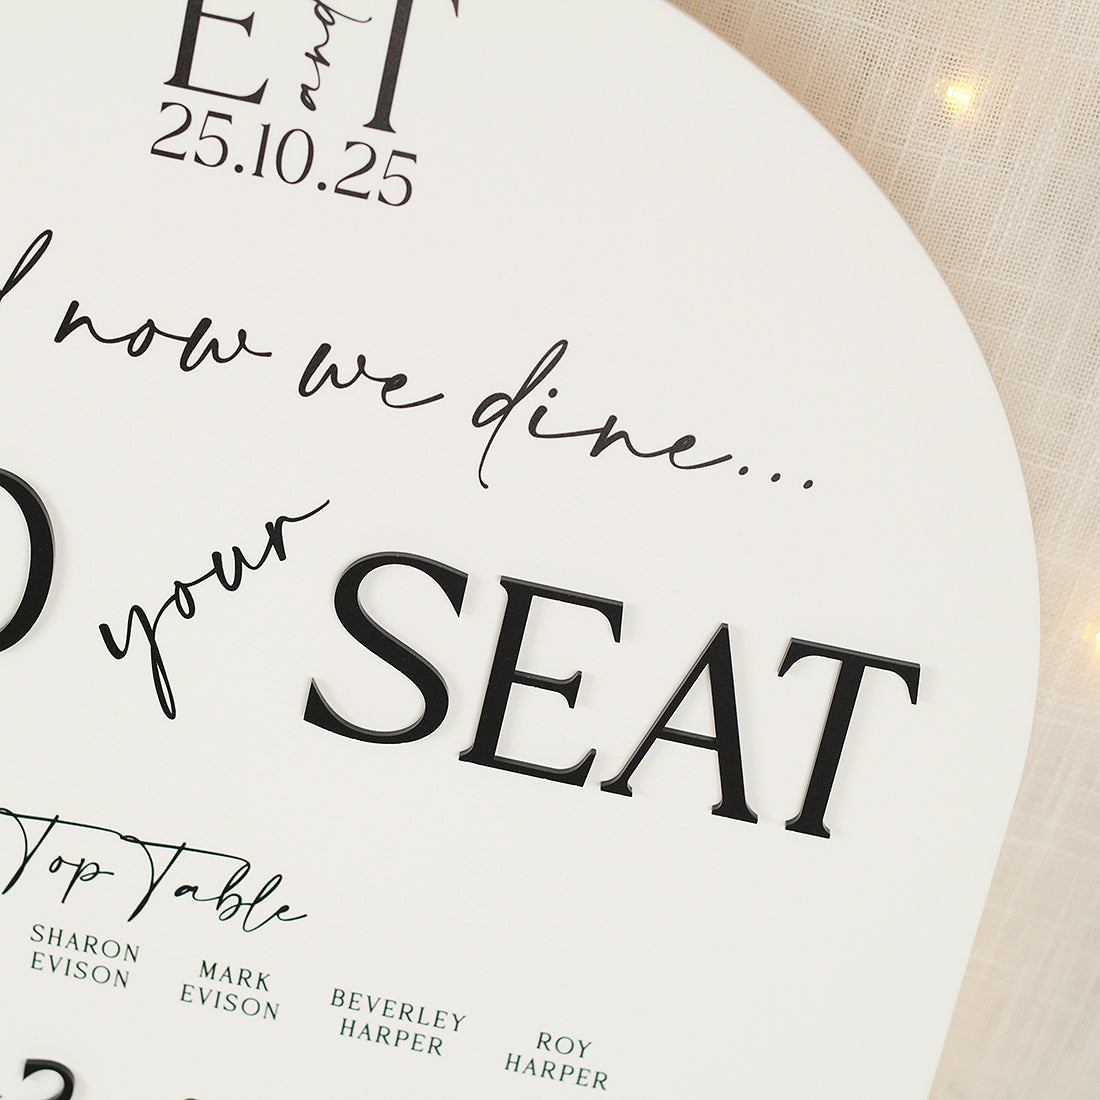 E and T
25.10.25
now we dine...
your SEAT
Top Table
SHARON EVISON
MARK EVISON
BEVERLEY HARPER
ROY HARPER